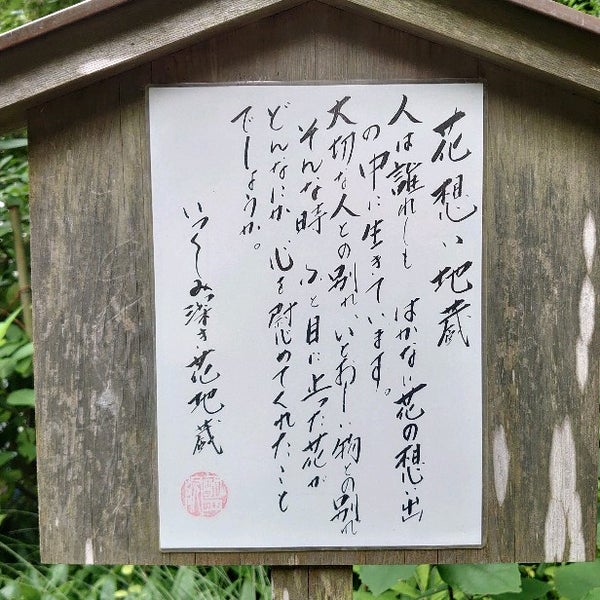 花想い地蔵
人は誰れしも はかない花の想い出
の中に生きています。
大切な人との別れ、いとおしい物との別れ
そんな時 ふと目に止った花が
どんなにか 心を慰めてくれたこと
でしょうか。
いつくしみ深き花地蔵